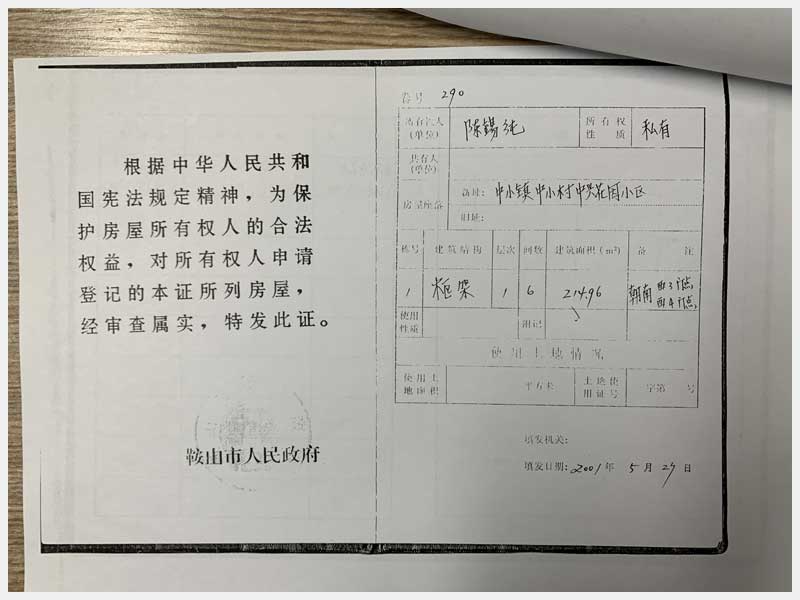 根据中华人民共和
国宪法规定精神，为保
护房屋所有权人的合法
权益，对所有权人申请
登记的本证所列房屋，
经审查属实，特发此证。
鞍山市人民政府
卷号 290
所有权人
(单位) 陈锡纯 所有权
性质 私有
共有人
(单位)
房屋座落 新址: 中小镇中小村中央花园小区
旧址:
栋号 建筑结构 层次 间数 建筑面积(m²) 备注
1 框架 1 6 214.96 朝南 西3
西4
使用
性质 附记
使用土地情况
使用土
地面积 平方米 土地使
用证号 字第 号
填发机关:
填发日期: 2001年 5月 29日